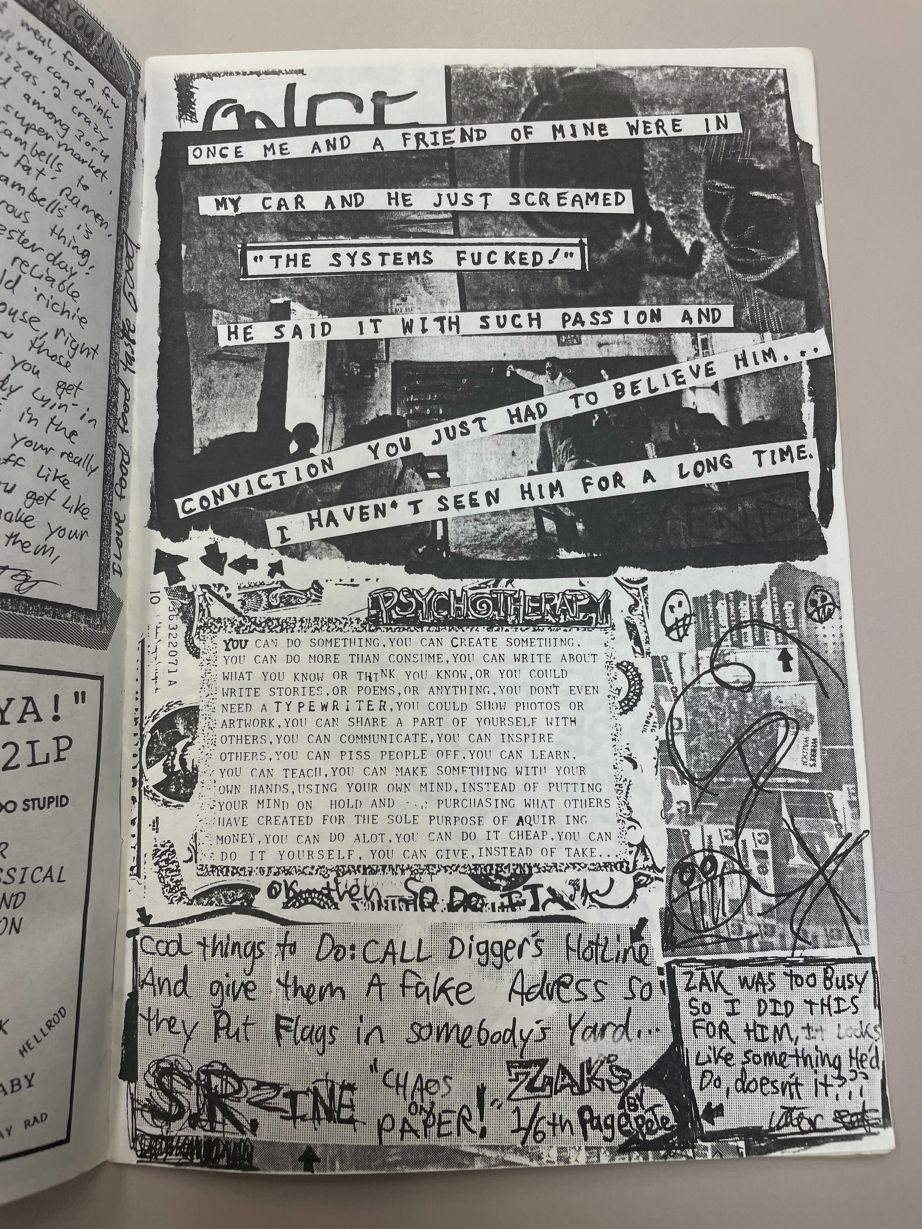 meal, for a few
you can drink
pizzas. 2 crazy
among 3 York
supermarket.
Cambells to
fat, Ramen.
Cambells is
thing,
esterday
reliable
richie
ouse, right
those
you get
lyin' in
in the
your really
like
you get like
make your
them,
I Love food food food
YA!"
2LP
DO STUPID
R
SSICAL
ND
ON
K
HELLROD
ABY
AY RAD
ONCE
ONCE ME AND A FRIEND OF MINE WERE IN
MY CAR AND HE JUST SCREAMED
"THE SYSTEMS FUCKED!"
HE SAID IT WITH SUCH PASSION AND
CONVICTION YOU JUST HAD TO BELIEVE HIM...
I HAVEN'T SEEN HIM FOR A LONG TIME.
END
PSYCHOTHERAPY
YOU CAN DO SOMETHING,YOU CAN CREATE SOMETHING.
YOU CAN DO MORE THAN CONSUME,YOU CAN WRITE ABOUT
WHAT YOU KNOW OR THINK YOU KNOW,OR YOU COULD
WRITE STORIES,OR POEMS,OR ANYTHING,YOU DON'T EVEN
NEED A TYPEWRITER,YOU COULD SHOW PHOTOS OR
ARTWORK,YOU CAN SHARE A PART OF YOURSELF WITH
OTHERS,YOU CAN COMMUNICATE,YOU CAN INSPIRE
OTHERS,YOU CAN PISS PEOPLE OFF,YOU CAN LEARN,
YOU CAN TEACH,YOU CAN MAKE SOMFTHING WITH YOUR
OWN HANDS,USING YOUR OWN MIND,INSTEAD OF PUTTING
YOUR MIND ON HOLD AND PURCHASING WHAT OTHERS
HAVE CREATED FOR THE SOLE PURPOSE OF AQUIR ING
MONEY,YOU CAN DO ALOT,YOU CAN DO IT CHEAP,YOU CAN
DO IT YOURSELF, YOU CAN GIVE,INSTEAD OF TAKE..
OK then SO DO IT
Cool things to Do: CALL Digger's Hotline
And give them A fake Adress so
they Put Flags in somebody's Yard...
S.R. ZINE "CHAOS ON PAPER!" ZAKS 1/6th Page BY PETE
ZAK WAS too Busy
SO I DID THIS
FOR HIM, It Looks
Like something He'd
Do, doesn't it???